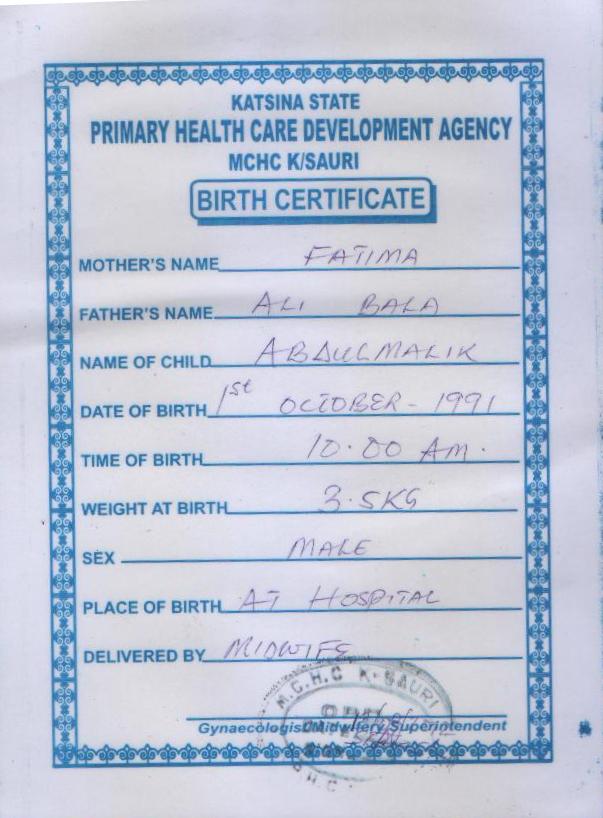 KATSINA STATE
PRIMARY HEALTH CARE DEVELOPMENT AGENCY
MCHC K/SAURI
BIRTH CERTIFICATE
MOTHER'S NAME FATIMA
FATHER'S NAME ALI BALA
NAME OF CHILD ABDULMALIK
DATE OF BIRTH 1st OCTOBER - 1991
TIME OF BIRTH 10.00 AM.
WEIGHT AT BIRTH 3.5KG
SEX MALE
PLACE OF BIRTH AT HOSPITAL
DELIVERED BY MIDWIFE
M.C.H.C K-SAURI
Gynaecologist/Midwifery Superintendent